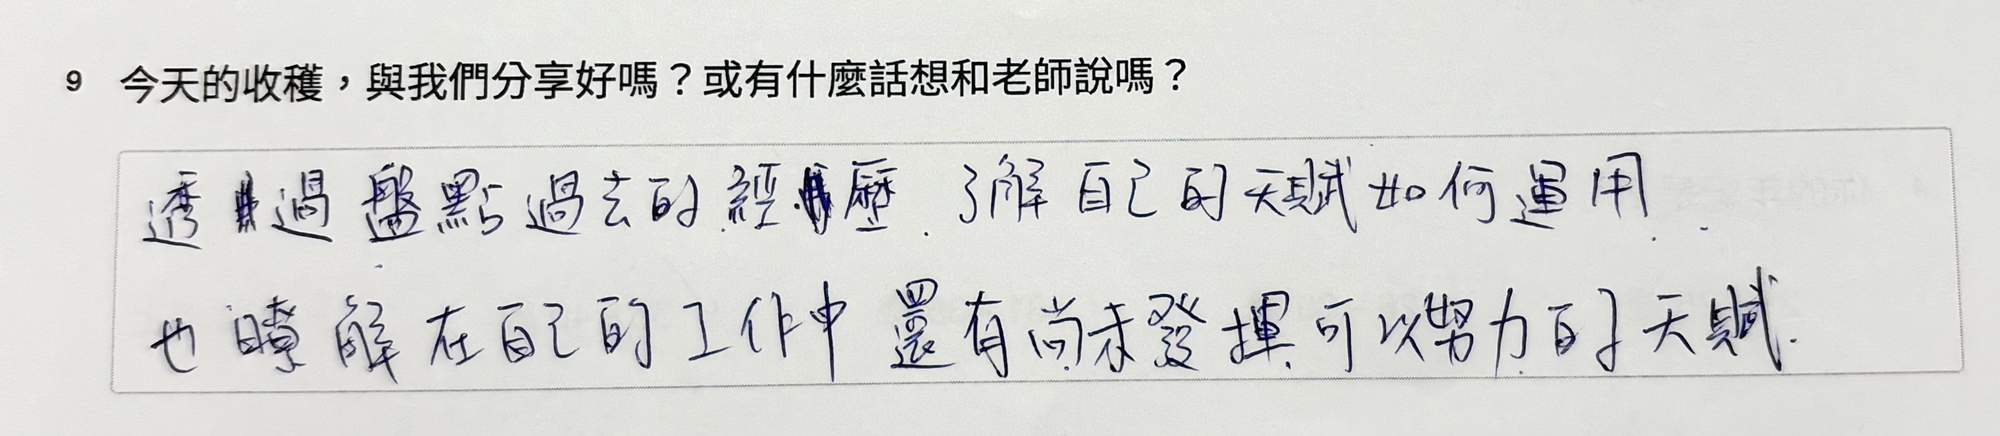 9 今天的收穫，與我們分享好嗎？或有什麼話想和老師說嗎？
透過盤點過去的經歷.了解自己的天賦如何運用..
也瞭解在自己的工作中還有尚未發揮.可以努力的天賦.